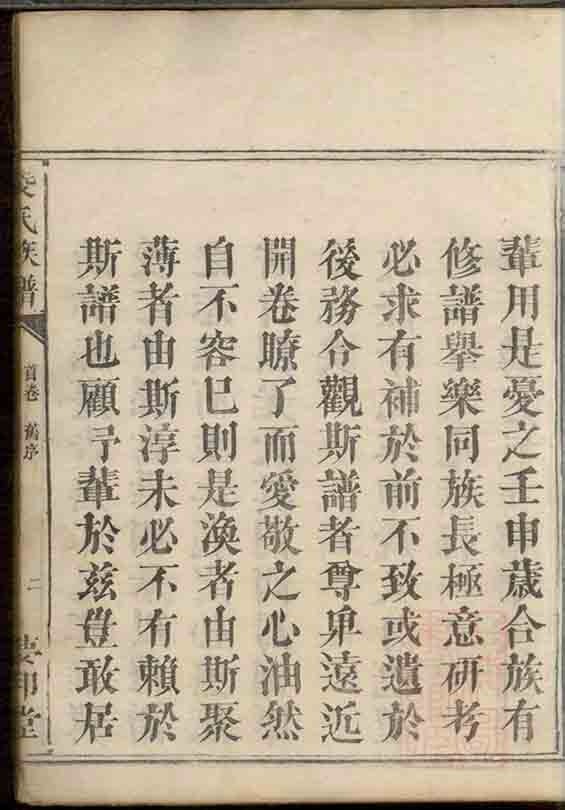 輩用是憂之壬申歲合族有
修譜舉樂同族長極意研考
必求有補於前不致或遺於
後務令觀斯譜者尊卑遠近
開卷瞭了而愛敬之心油然
自不容已則是渙者由斯聚
薄者由斯淳未必不有賴於
斯譜也顧予輩於兹豈敢居
氏族譜
首卷 舊序
二
堂